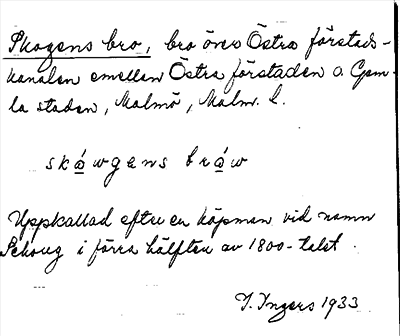 Skogens bro, bro över Östra förstads-
kanalen emellan Östra förstaden o. Gam-
la staden, Malmö, Malm. l.
skáwgens bráw
Uppkallad efter en köpman vid namn
Schoug i förra hälften av 1800-talet.
I. Ingers 1933